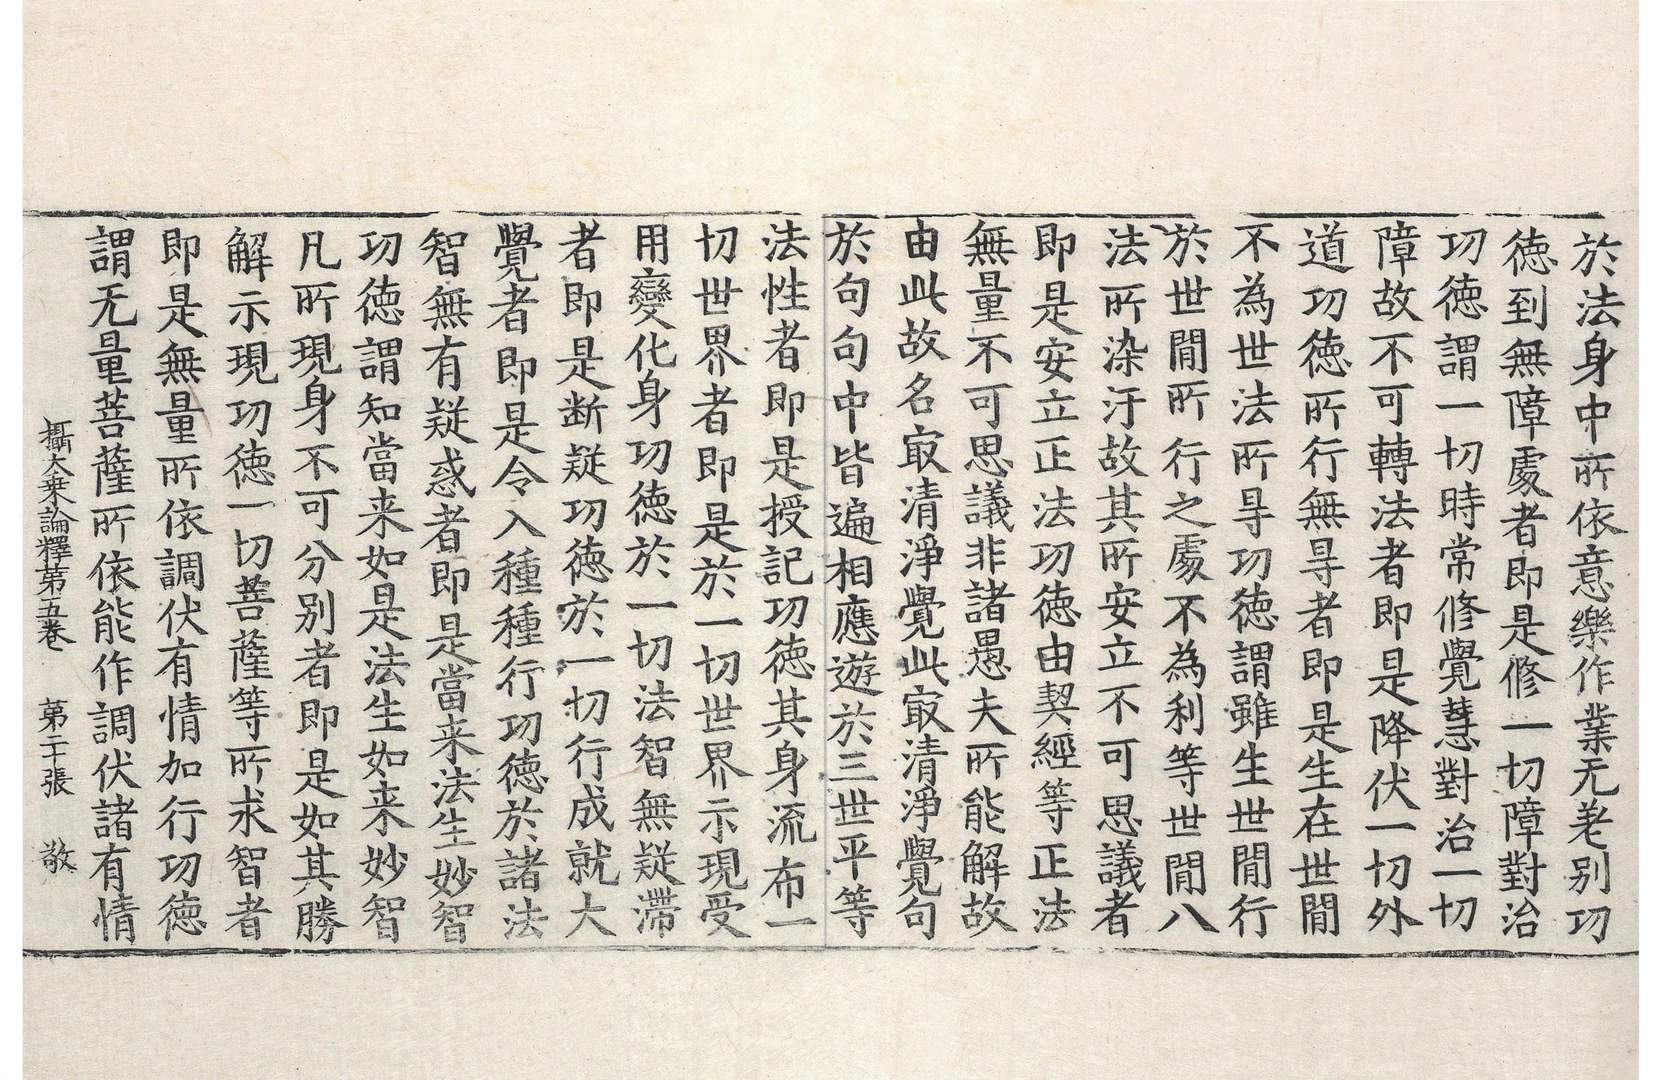 於法身中所依意樂作業无差别功
德到無障處者即是修一切障對治
功德謂一切時常修覺慧對治一切
障故不可轉法者即是降伏一切外
道功德所行無㝵者即是生在世間
不為世法所㝵功德謂雖生世間行
於世間所行之處不為利等世間八
法所染汙故其所安立不可思議者
即是安立正法功德由契經等正法
無量不可思議非諸愚夫所能解故
由此故名㝡清淨覺此㝡清淨覺句
於句句中皆遍相應遊於三世平等
法性者即是授記功德其身流布一
切世界者即是於一切世界示現受
用變化身功德於一切法智無疑滯
者即是断疑功德於一切行成就大
覺者即是令入種種行功德於諸法
智無有疑惑者即是當来法生妙智
功徳謂知當来如是法生如来妙智
凡所現身不可分别者即是如其勝
解示現功德一切菩薩等所求智者
即是無量所依調伏有情加行功德
謂无量菩薩所依能作調伏諸有情
攝大乗論釋第五卷 第二十張 敬